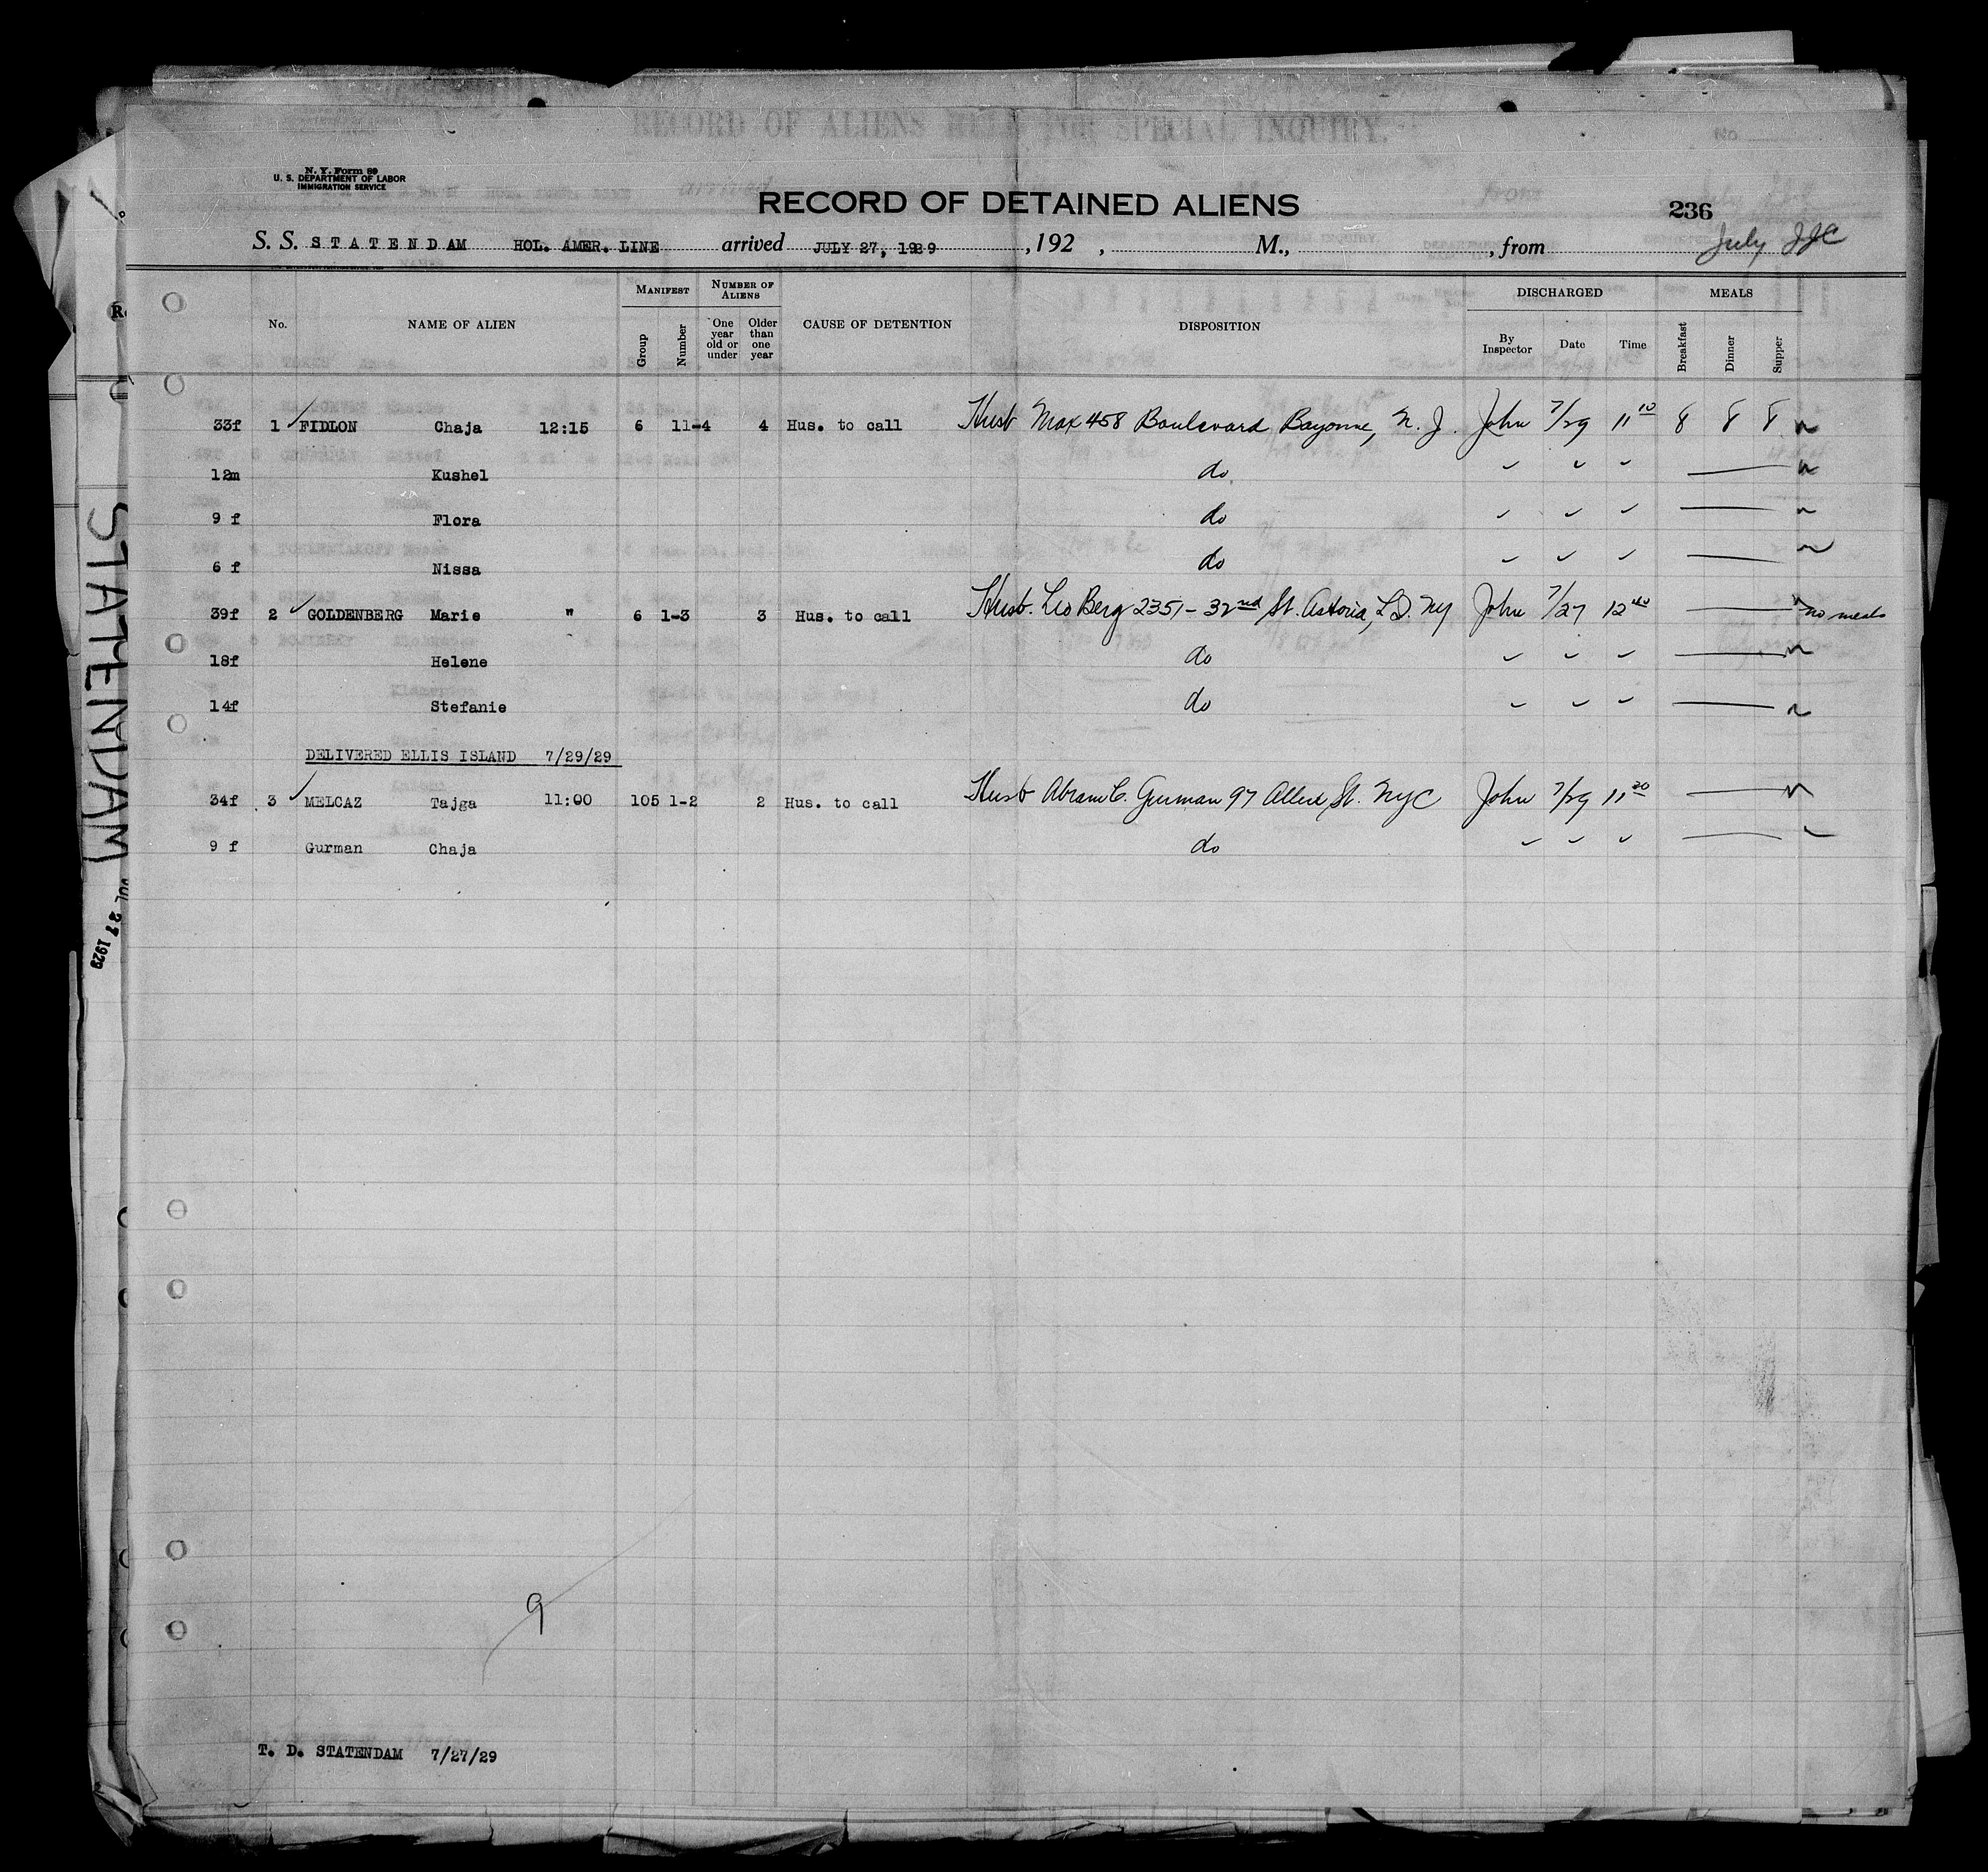 RECORD OF ALIENS HELD FOR SPECIAL INQUIRY.
N. Y. Form 89
U. S. DEPARTMENT OF LABOR
IMMIGRATION SERVICE
RECORD OF DETAINED ALIENS
236
S. S. STATENDAM HOL. AMER. LINE arrived JULY 27, 1929 , 192 , M., , from July JJC
No. NAME OF ALIEN MANIFEST Group Number NUMBER OF ALIENS One year old or under Older than one year CAUSE OF DETENTION DISPOSITION DISCHARGED By Inspector Date Time MEALS Breakfast Dinner Supper
33f 1 ✓ FIDLON Chaja 12:15 6 11-4 4 Hus. to call Husb Max 458 Boulevard Bayonne, N. J. John 7/29 11 10 8 8 8
12m Kushel do ✓ ✓ ✓
9 f Flora do ✓ ✓ ✓
6 f Nissa do ✓ ✓ ✓
39f 2 ✓ GOLDENBERG Marie " 6 1-3 3 Hus. to call Husb. Leo Berg 2351 - 32nd St. Astoria, L.I. NY John 7/27 12 40 no meals
18f Helene do ✓ ✓ ✓
14f Stefanie do ✓ ✓ ✓
DELIVERED ELLIS ISLAND 7/29/29
34f 3 ✓ MELCAZ Tajga 11:00 105 1-2 2 Hus. to call Husb Abram C. Gurman 97 Allen St. NYC John 7/29 11 30
9 f Gurman Chaja do ✓ ✓ ✓
9
T. D. STATENDAM 7/27/29
STATENDAM JUL 27 1929